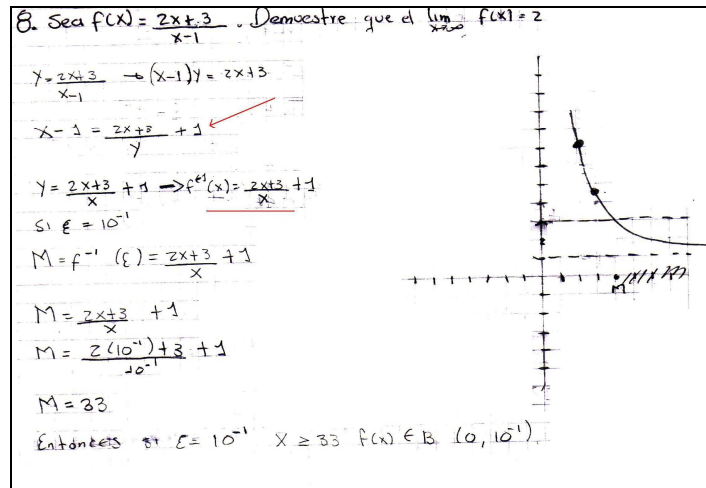 8. Sea f(x) = 2x+3 / x-1 . Demuestre que el lim x→∞ f(x) = 2
y = 2x+3 / x-1 → (x-1)y = 2x+3
x - 1 = 2x+3 / y + 1
y = 2x+3 / x + 1 → f⁻¹(x) = 2x+3 / x + 1
Si ε = 10⁻¹
M = f⁻¹ (ε) = 2x+3 / x + 1
M = 2x+3 / x + 1
M = 2(10⁻¹)+3 / 10⁻¹ + 1
M = 33
Entonces si ε = 10⁻¹ x ≥ 33 f(x) ∈ B (0, 10⁻¹)
2
M